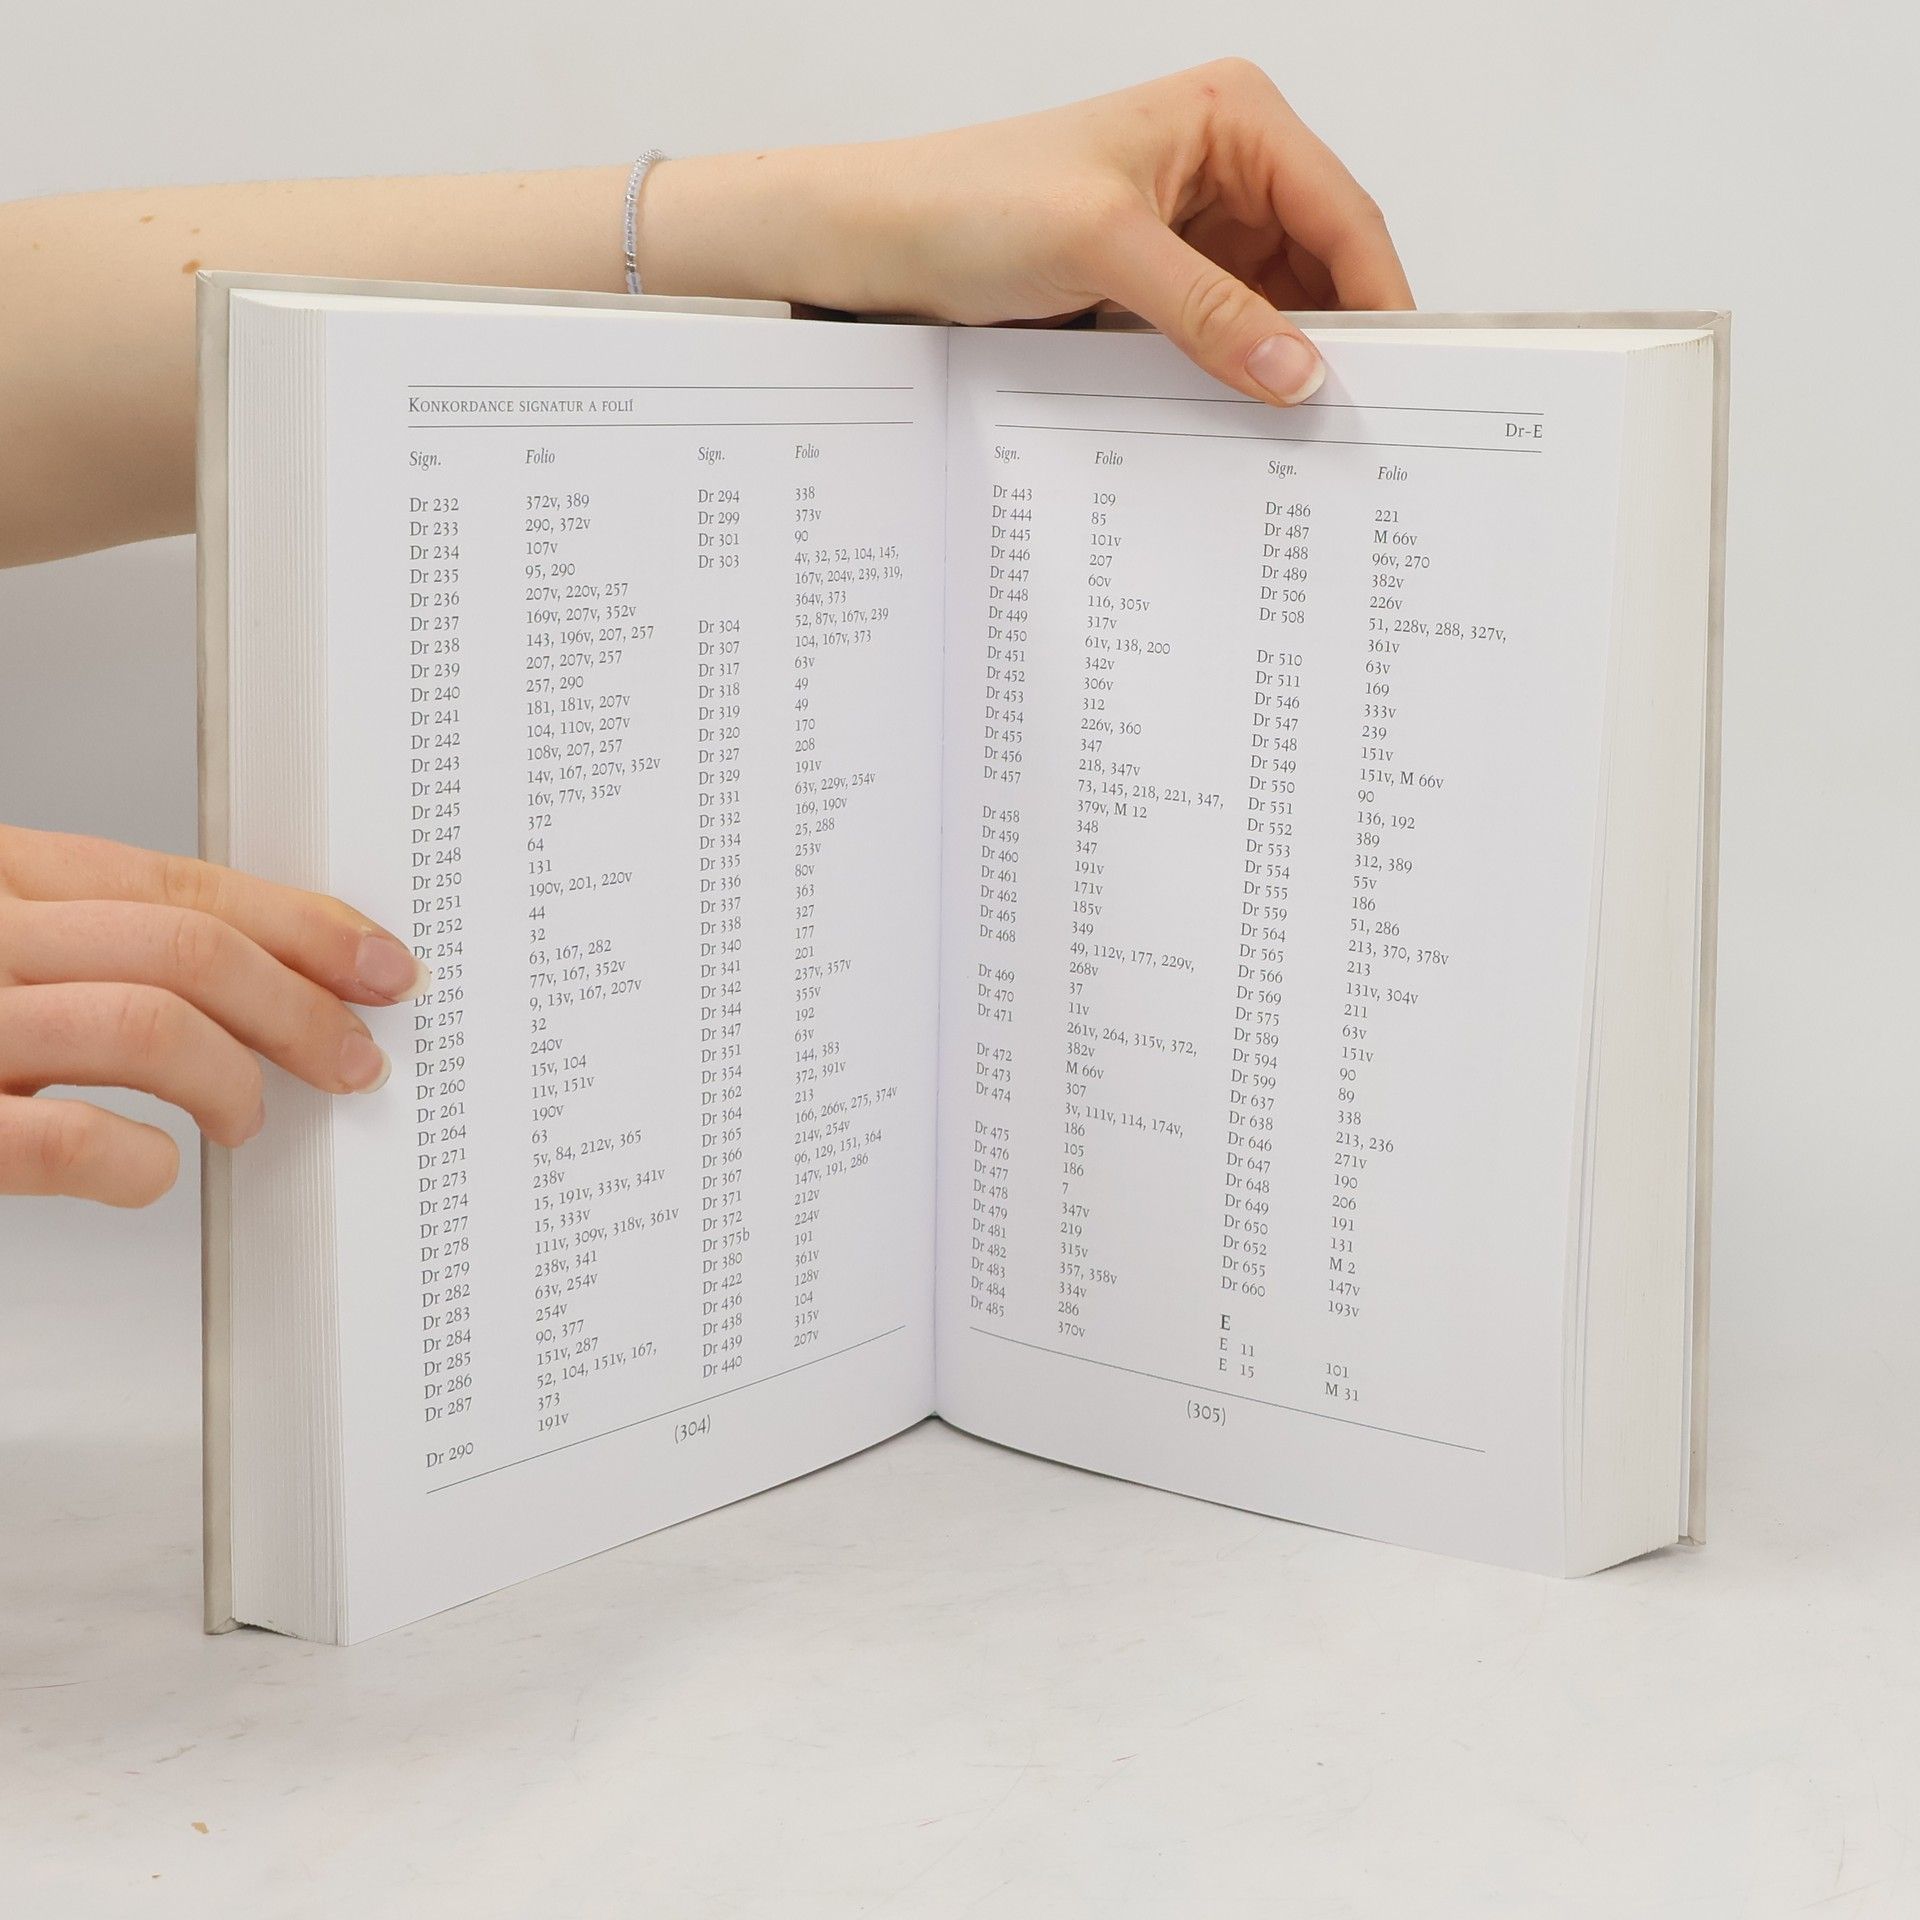 Konkordance signatur a folií
Sign. Folio
Dr 232 372v, 389
Dr 233 290, 372v
Dr 234 107v
Dr 235 95, 290
Dr 236 207v, 220v, 257
Dr 237 169v, 207v, 352v
Dr 238 143, 196v, 207, 257
Dr 239 207, 207v, 257
Dr 240 257, 290
Dr 241 181, 181v, 207v
Dr 242 104, 110v, 207v
Dr 243 108v, 207, 257
Dr 244 14v, 167, 207v, 352v
Dr 245 16v, 77v, 352v
Dr 247 372
Dr 248 64
Dr 250 131
Dr 251 190v, 201, 220v
Dr 252 44
Dr 254 32
255 63, 167, 282
Dr 256 77v, 167, 352v
Dr 257 9, 13v, 167, 207v
Dr 258 32
Dr 259 240v
Dr 260 15v, 104
Dr 261 11v, 151v
Dr 264 190v
Dr 271 63
Dr 273 5v, 84, 212v, 365
Dr 274 238v
Dr 277 15, 191v, 333v, 341v
Dr 278 15, 333v
Dr 279 111v, 309v, 318v, 361v
Dr 282 238v, 341
Dr 283 63v, 254v
Dr 284 254v
Dr 285 90, 377
Dr 286 151v, 287
Dr 287 52, 104, 151v, 167,
373
Dr 290 191v
Sign. Folio
Dr 294 338
Dr 299 373v
Dr 301 90
Dr 303 4v, 32, 52, 104, 145,
167v, 204v, 239, 319,
364v, 373
Dr 304 52, 87v, 167v, 239
Dr 307 104, 167v, 373
Dr 317 63v
Dr 318 49
Dr 319 49
Dr 320 170
Dr 327 208
Dr 329 191v
Dr 331 63v, 229v, 254v
Dr 332 169, 190v
Dr 334 25, 288
Dr 335 253v
Dr 336 80v
Dr 337 363
Dr 338 327
Dr 340 177
Dr 341 201
Dr 342 237v, 357v
Dr 344 355v
Dr 347 192
Dr 351 63v
Dr 354 144, 383
Dr 362 372, 391v
Dr 364 213
Dr 365 166, 266v, 275, 374v
Dr 366 214v, 254v
Dr 367 96, 129, 151, 364
Dr 371 147v, 191, 286
Dr 372 212v
Dr 375b 224v
Dr 380 191
Dr 422 361v
Dr 436 128v
Dr 438 104
Dr 439 315v
Dr 440 207v
(304)
Dr–E
Sign. Folio
Dr 443 109
Dr 444 85
Dr 445 101v
Dr 446 207
Dr 447 60v
Dr 448 116, 305v
Dr 449 317v
Dr 450 61v, 138, 200
Dr 451 342v
Dr 452 306v
Dr 453 312
Dr 454 226v, 360
Dr 455 347
Dr 456 218, 347v
Dr 457 73, 145, 218, 221, 347,
379v, M 12
Dr 458 348
Dr 459 347
Dr 460 191v
Dr 461 171v
Dr 462 185v
Dr 465 349
Dr 468 49, 112v, 177, 229v,
268v
Dr 469 37
Dr 470 11v
Dr 471 261v, 264, 315v, 372,
382v
Dr 472 M 66v
Dr 473 307
Dr 474 3v, 111v, 114, 174v,
186
Dr 475 105
Dr 476 186
Dr 477 7
Dr 478 347v
Dr 479 219
Dr 481 315v
Dr 482 357, 358v
Dr 483 334v
Dr 484 286
Dr 485 370v
Sign. Folio
Dr 486 221
Dr 487 M 66v
Dr 488 96v, 270
Dr 489 382v
Dr 506 226v
Dr 508 51, 228v, 288, 327v,
361v
Dr 510 63v
Dr 511 169
Dr 546 333v
Dr 547 239
Dr 548 151v
Dr 549 151v, M 66v
Dr 550 90
Dr 551 136, 192
Dr 552 389
Dr 553 312, 389
Dr 554 55v
Dr 555 186
Dr 559 51, 286
Dr 564 213, 370, 378v
Dr 565 213
Dr 566 131v, 304v
Dr 569 211
Dr 575 63v
Dr 589 151v
Dr 594 90
Dr 599 89
Dr 637 338
Dr 638 213, 236
Dr 646 271v
Dr 647 190
Dr 648 206
Dr 649 191
Dr 650 131
Dr 652 M 2
Dr 655 147v
Dr 660 193v
E
E 11 101
E 15 M 31
(305)